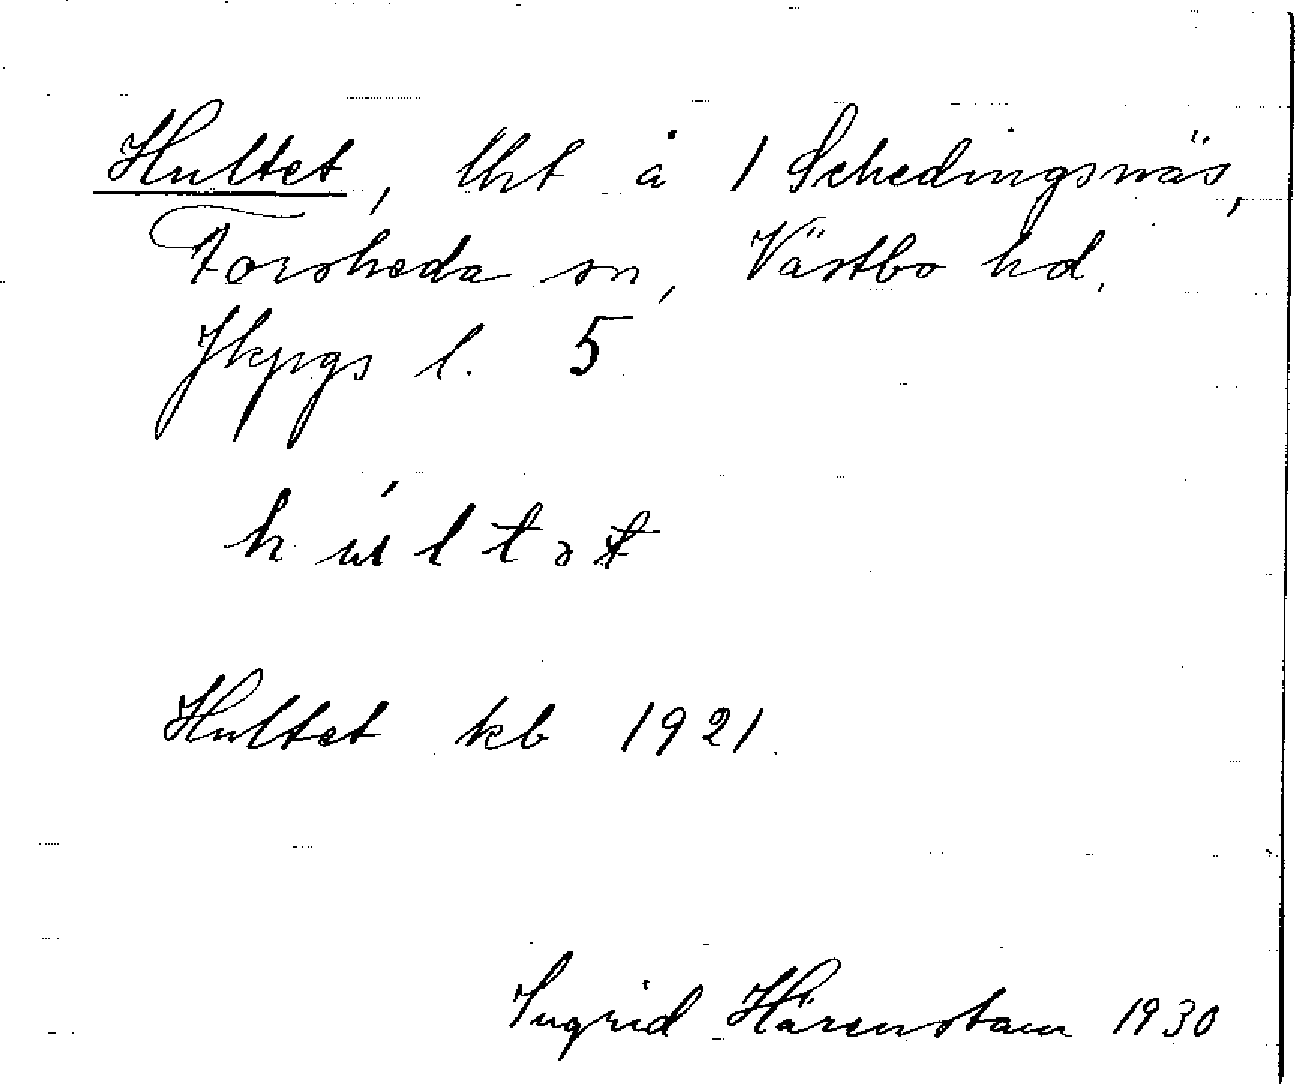 Hultet, lht å 1 Schedingsnäs,
Forsheda sn, Västbo hd.
Jkpgs l. 5
h ú l t ə t
Hultet kb 1921.
Ingrid Härenstam 1930